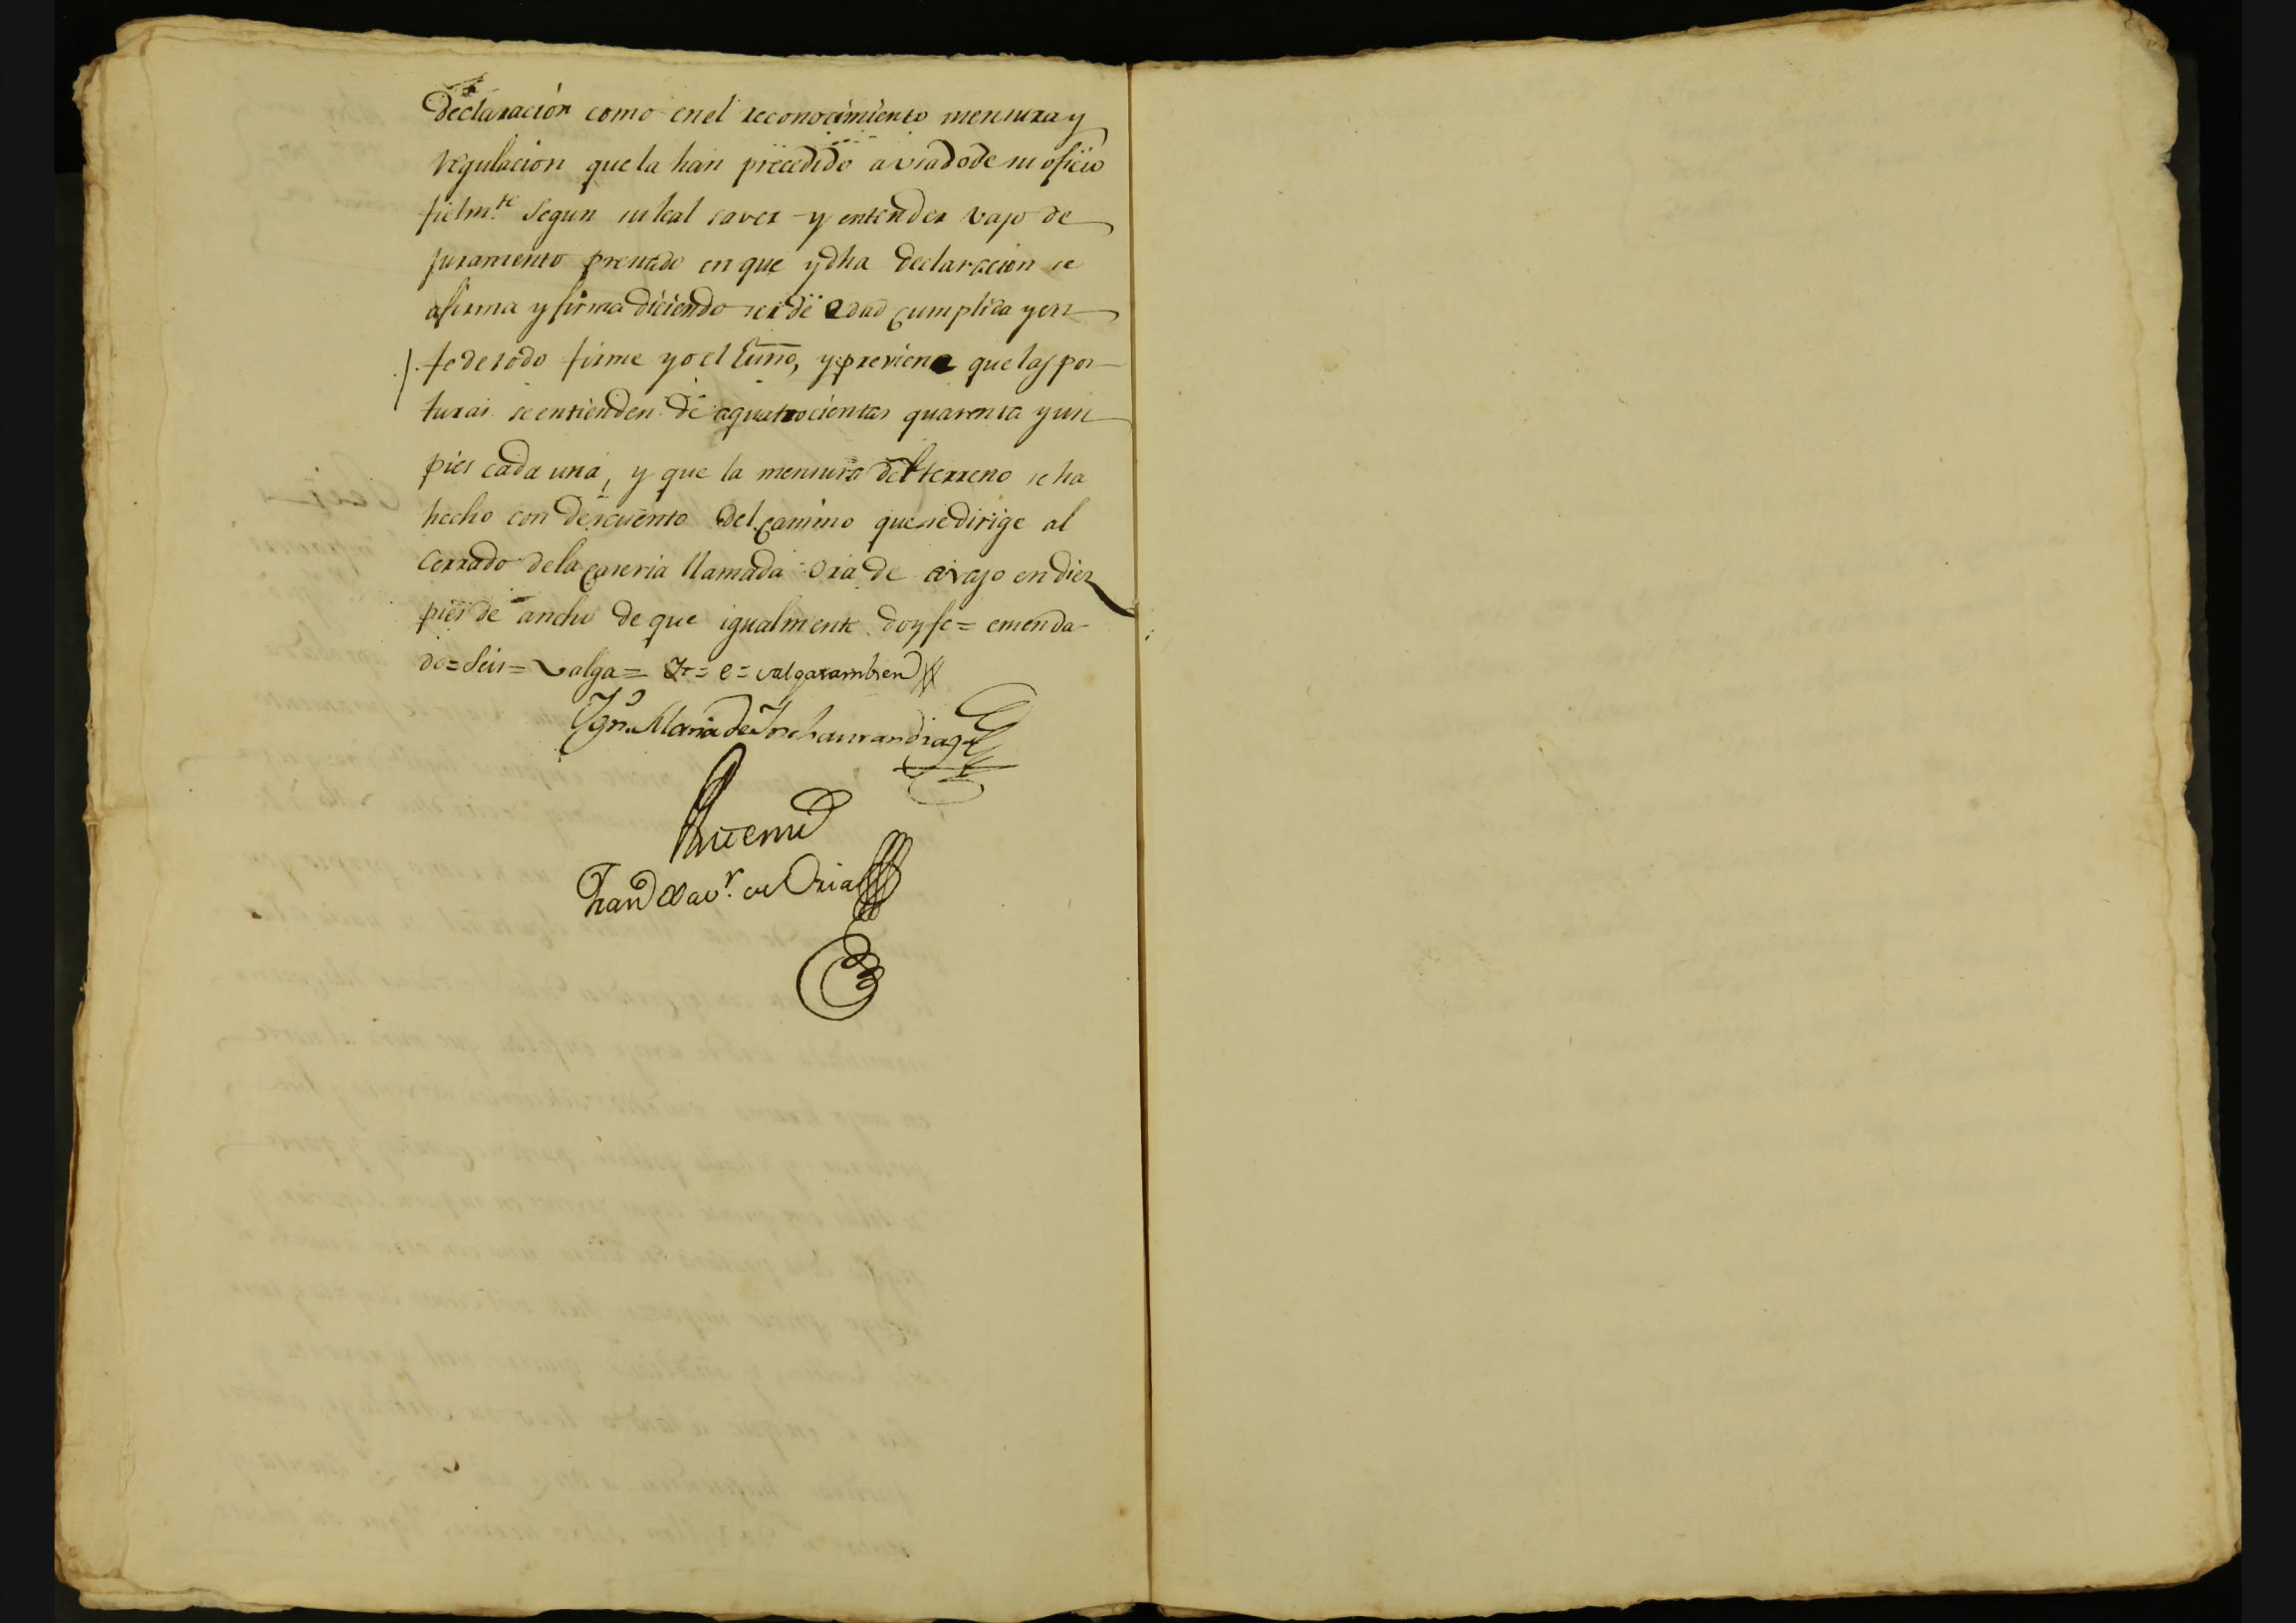 Declaración como en el reconocimiento mensura y
regulacion que la han precedido a usado de su oficio
fielm.te segun su leal saver y entender vajo de
juramento prestado en que y dha declaracion se
afirma y firma diciendo ser de edad cumplida y en
fe de todo firme yo el Essno, y previene que las pos-
turas se entienden de a quatrocientos quarenta y un
pies cada una, y que la mensura del terreno se ha
hecho con descuento del camino que se dirige al
Cerrado de la caseria llamada Oria de avajo en diez
pies de ancho de que igualmente doy fe = emenda-
do = Seis = valga = = e = valga tambien
Ign.o Maria de Inchaurrandiaga
Antemi
Fran.co Xav.r de Oria